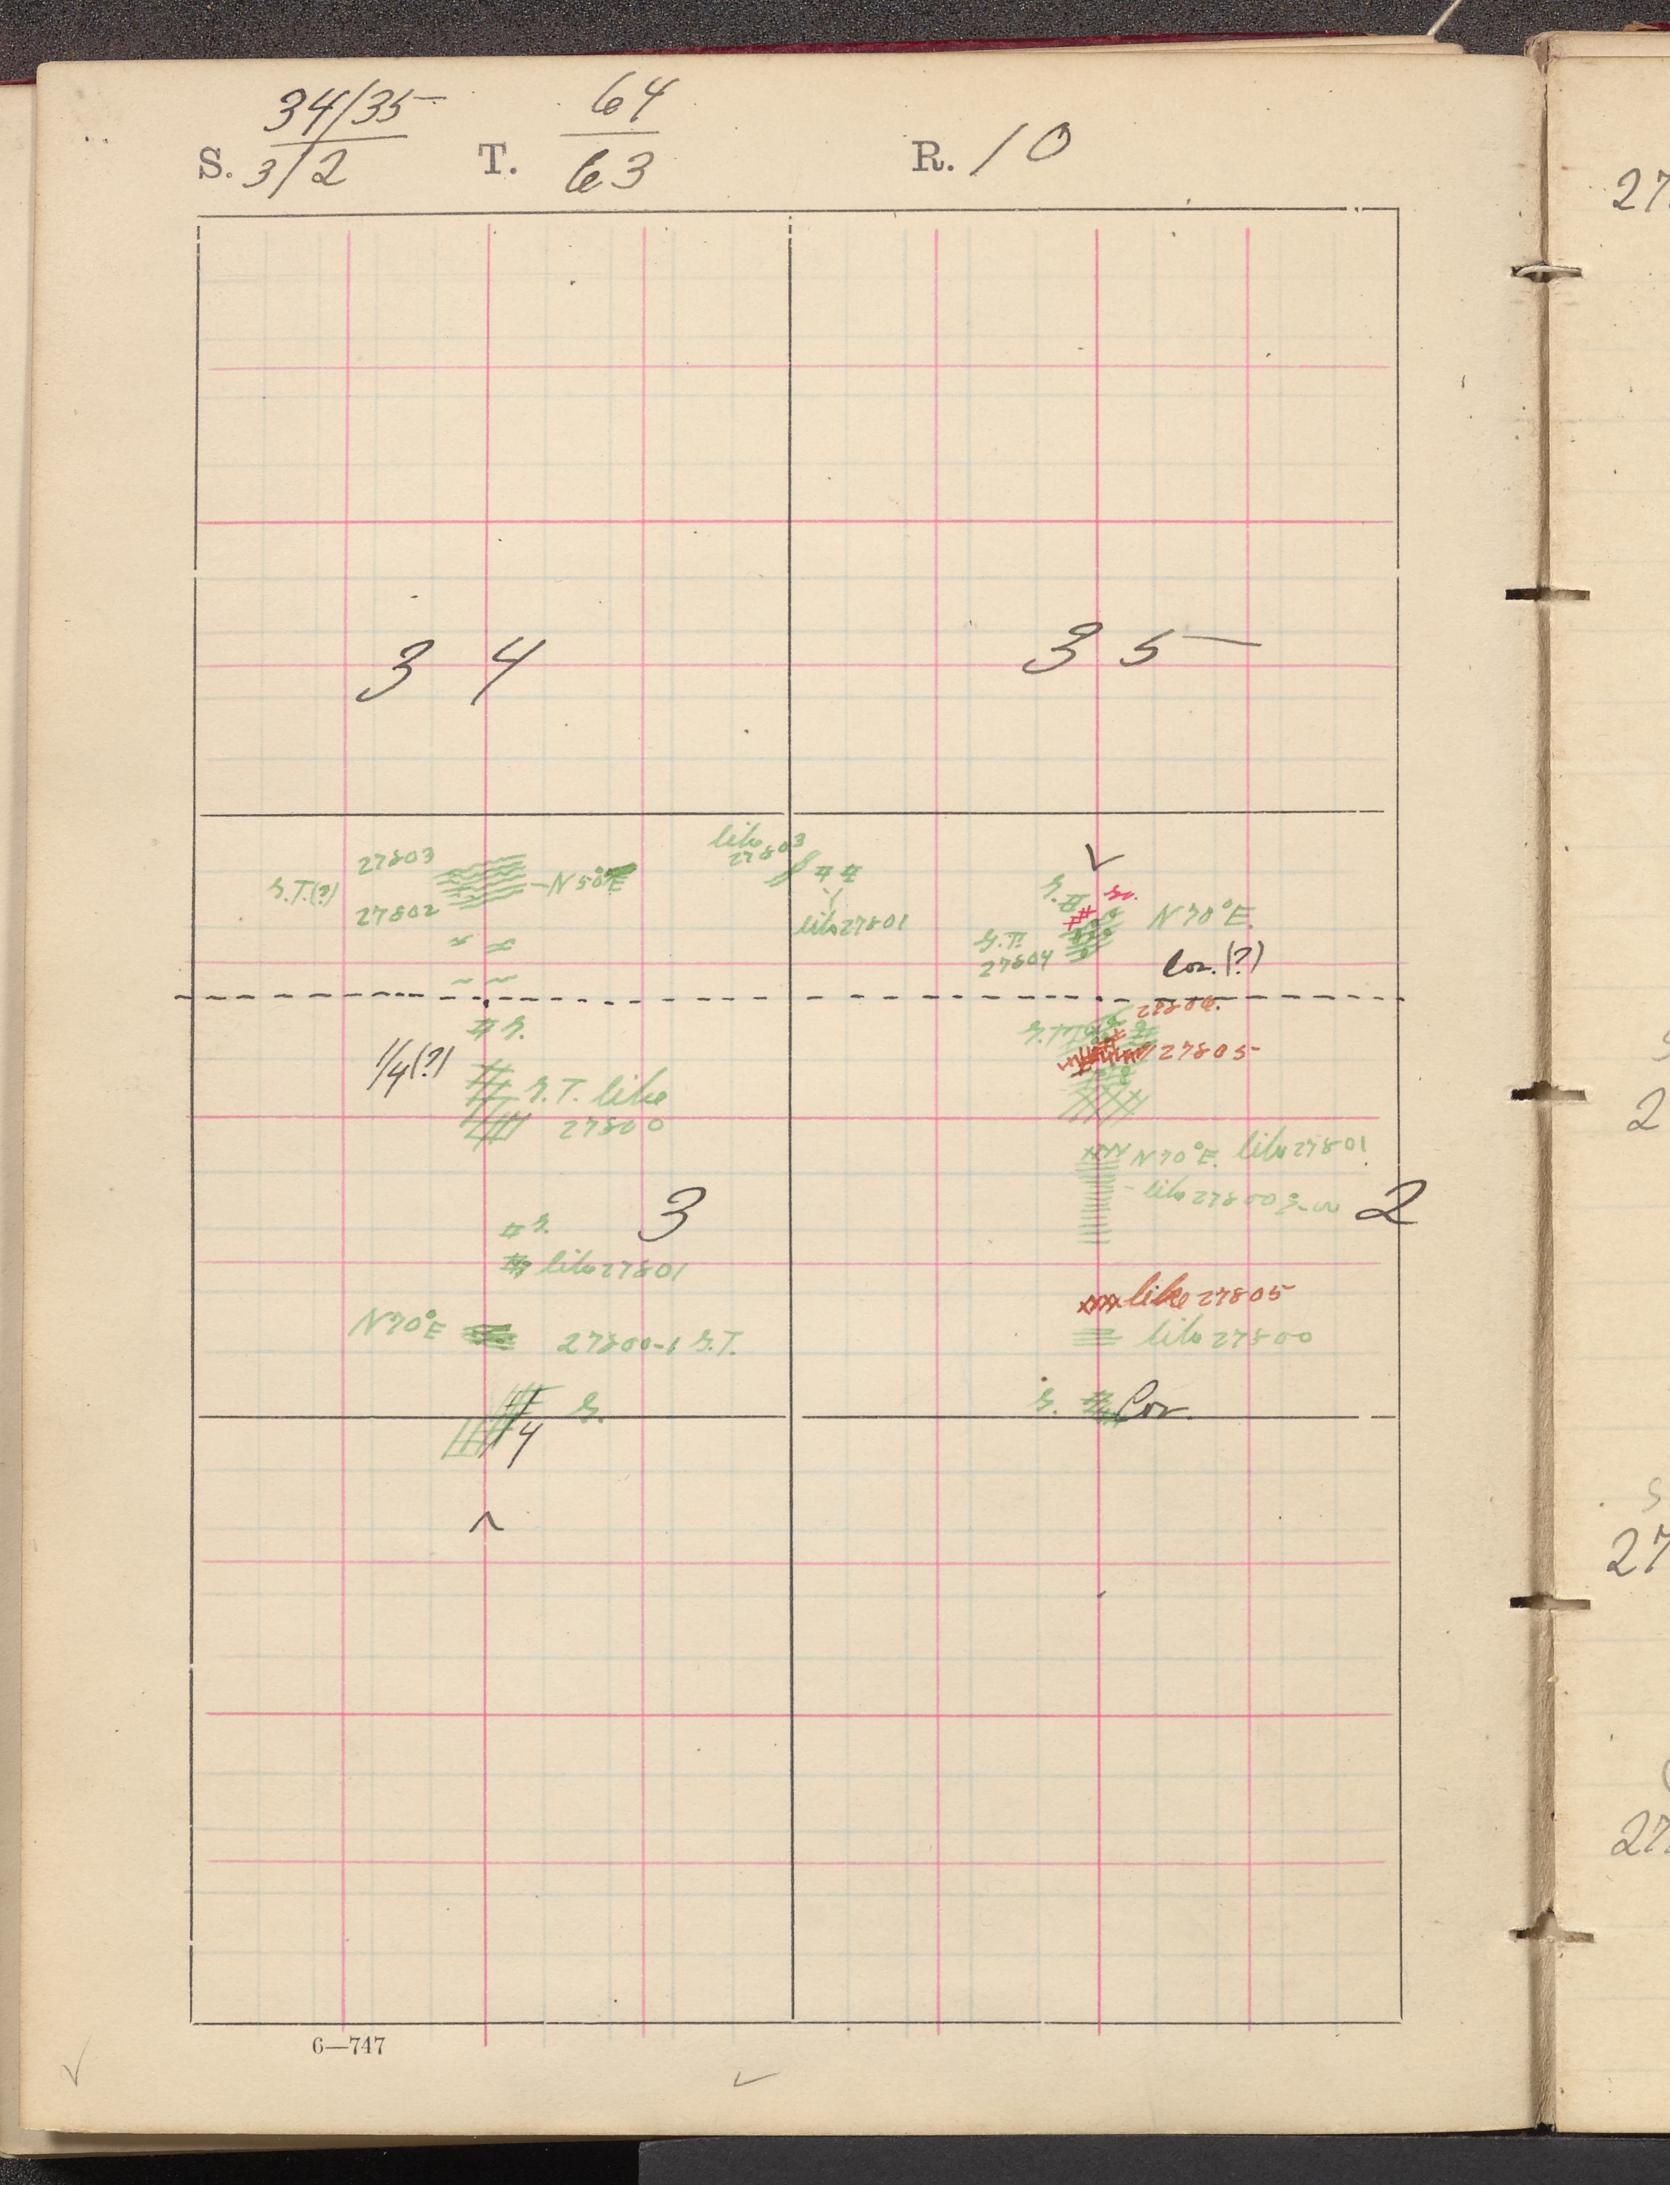 34/35 64
S. 3/2 T. 63 R. 10
34 35
like 27803
27803
N50°E
S.T.(?)
27802
like 27801
S.
N70°E.
S.T.
27804
Cor.(?)
27806.
S.
1/4(?)
27805
S.T. like
27800
N70°E. like 27801
like 27800
3 2
S.
like 27801
like 27805
N70°E 27800-1 S.T.
like 27800
S. Cor.
1/4 S.
6—747
27
2
27
27